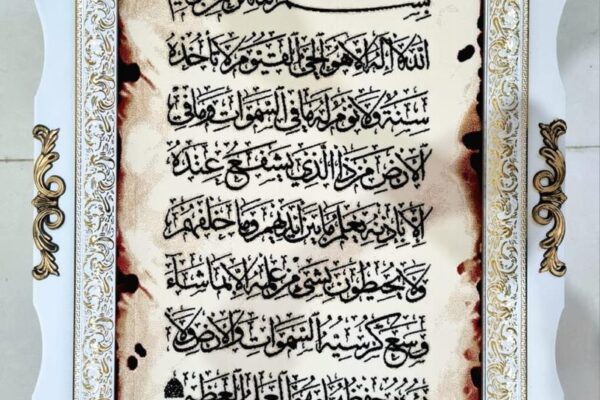 بسم الله الرحمن الرحيم
الله لا إله إلا هو الحي القيوم لا تأخذه
سنة ولا نوم له ما في السموات وما في
الأرض من ذا الذي يشفع عنده
إلا بإذنه يعلم ما بين أيديهم وما خلفهم
ولا يحيطون بشيء من علمه إلا بما شاء
وسع كرسيه السموات والأرض ولا
يئوده حفظهما وهو العلي العظيم